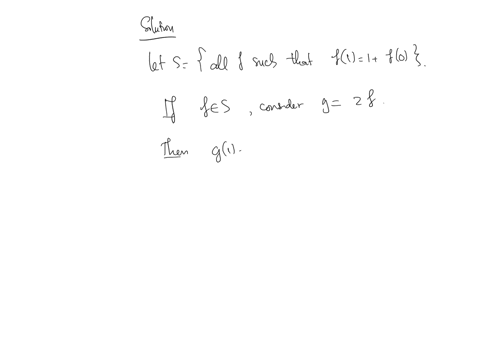 Solution
let S = { all f such that f(1) = 1 + f(0) }.
If f ∈ S, consider g = 2f.
Then g(1).